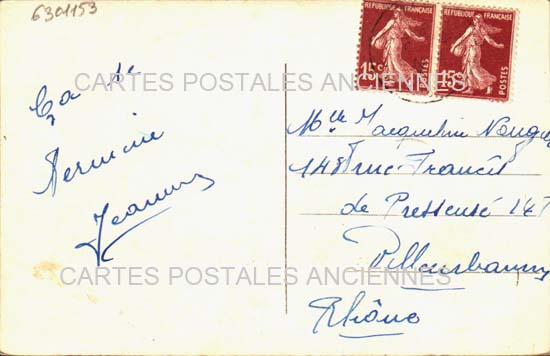 6301153
Ça se
termine
Jeannine
REPUBLIQUE FRANÇAISE
15c POSTES
REPUBLIQUE FRANÇAISE
15c POSTES
Mlle Jacqueline
148 rue Francis
de Pressensé 147
Villeurbanne
Rhône
CARTES POSTALES ANCIENNES
CARTES POSTALES ANCIENNES